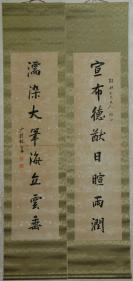 宣布德猷日暄雨潤
濡染大筆海立雲垂